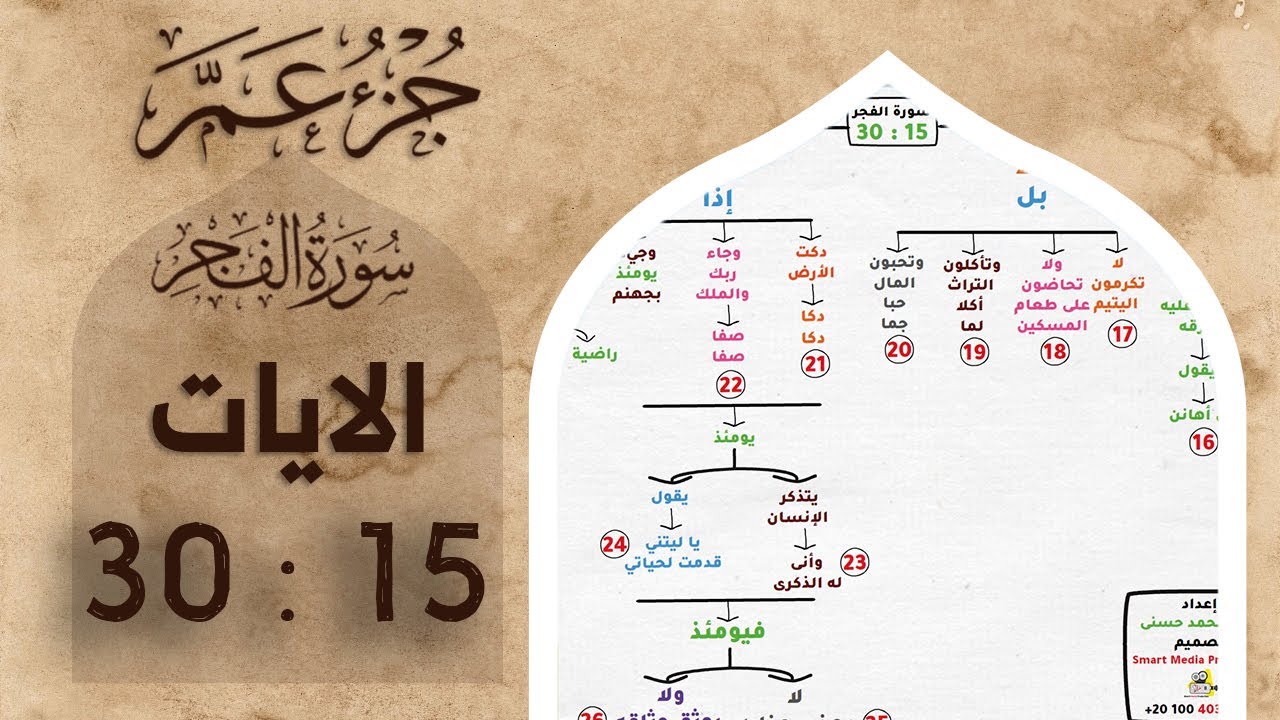 جُزْءُ عَمَّ
سُورَةُ الفَجْرِ
الايات
30 : 15
سورة الفجر
30 : 15
بل
لا
تكرمون
اليتيم
17
ولا
تحاضون
على طعام
المسكين
18
وتأكلون
التراث
أكلا
لما
19
وتحبون
المال
حبا
جما
20
يقول
أهانن
16
إذا
دكت
الأرض
دكا
دكا
21
وجاء
ربك
والملك
صفا
صفا
22
يومئذ
بجهنم
راضية
يومئذ
يتذكر
الإنسان
وأنى
له الذكرى
23
يقول
يا ليتني
قدمت لحياتي
24
فيومئذ
لا
ولا
إعداد
حسنى
Smart Media
+20 100